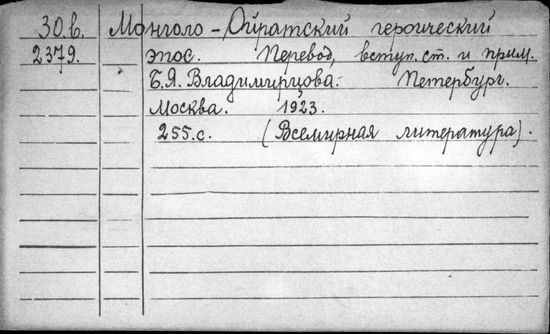 30.в. Монголо-Ойратский героический
2379. эпос. Перевод, вступ. ст. и прим.
Б.Я. Владимирцова. Петербург.
Москва. 1923.
255.с. (Всемирная литература).